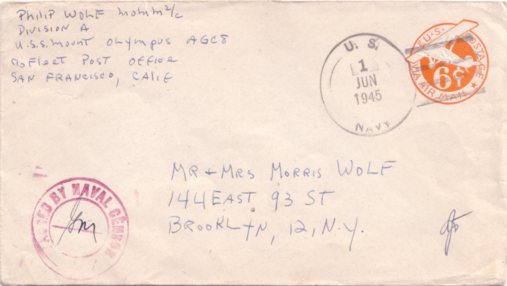 Philip Wolf MoMM 2/c
Division A
U.S.S. Mount Olympus AGC8
℅ Fleet Post Office
San Francisco, Calif
U. S.
1
JUN
1945
NAVY
U.S. POSTAGE
VIA AIR MAIL
6¢
Mr & Mrs Morris Wolf
144 East 93 St
Brooklyn, 12, N.Y.
PASSED BY NAVAL CENSOR